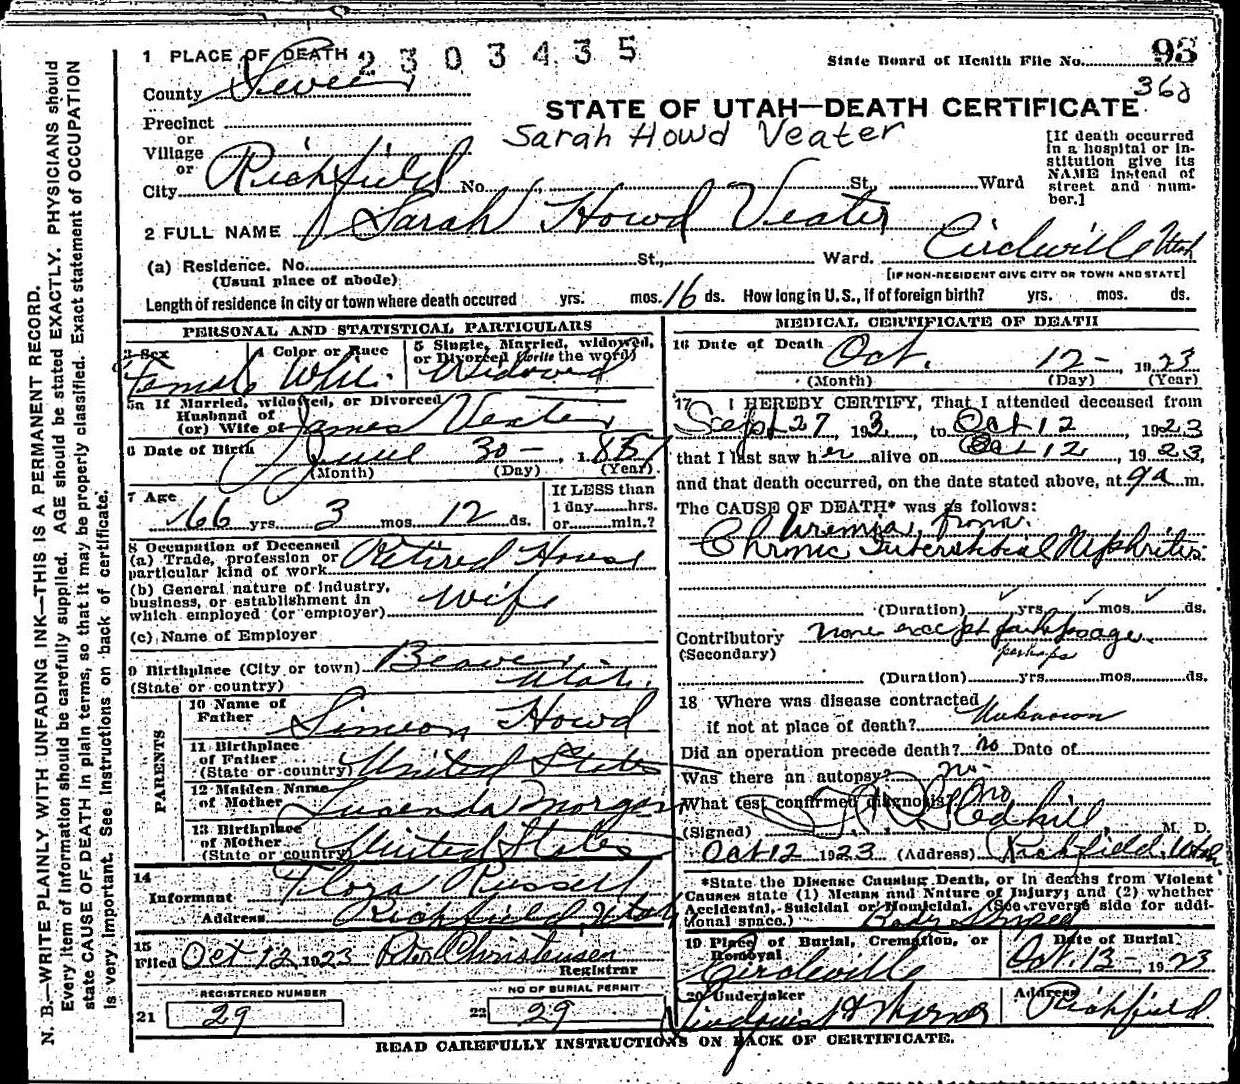 1 PLACE OF DEATH 2303435
State Board of Health File No. 93
County Sevier
368
STATE OF UTAH—DEATH CERTIFICATE
Precinct
Sarah Howd Veater
or
Village
or
City Richfield No. St. Ward
[If death occurred
in a hospital or in-
stitution give its
NAME instead of
street and num-
ber.]
2 FULL NAME Sarah Howd Veater
(a) Residence. No. St., Ward. Circleville Utah
(Usual place of abode)
[IF NON-RESIDENT GIVE CITY OR TOWN AND STATE]
Length of residence in city or town where death occured yrs. mos. 16 ds. How long in U.S., if of foreign birth? yrs. mos. ds.
PERSONAL AND STATISTICAL PARTICULARS
3 Sex Female
4 Color or Race White
5 Single, Married, widowed,
or Divorced (write the word)
Widowed
5a If Married, widowed, or Divorced
Husband of
(or) Wife of James Veater
6 Date of Birth June 30- 1857
(Month) (Day) (Year)
7 Age
66 yrs. 3 mos. 12 ds.
If LESS than
1 day hrs.
or min.?
8 Occupation of Deceased
(a) Trade, profession or
particular kind of work Retired House
(b) General nature of industry,
business, or establishment in
which employed (or employer) wife
(c) Name of Employer
9 Birthplace (City or town) Beaver
(State or country) Utah.
PARENTS
10 Name of
Father Simeon Howd
11 Birthplace
of Father
(State or country) United States
12 Maiden Name
of Mother Lucinda Morgan
13 Birthplace
of Mother
(State or country) United States
14
Informant Flora Russell
Address Richfield Utah
15
Filed Oct 12 1923 Peter Christensen
Registrar
REGISTERED NUMBER
21 29
NO OF BURIAL PERMIT
22 29
MEDICAL CERTIFICATE OF DEATH
16 Date of Death
Oct. 12- 1923
(Month) (Day) (Year)
17 I HEREBY CERTIFY, That I attended deceased from
Sept 27 193, to Oct 12 1923
that I last saw her alive on Oct 12, 1923,
and that death occurred, on the date stated above, at 9a m.
The CAUSE OF DEATH* was as follows:
Uremia, from
Chronic Interstitial Nephritis
(Duration) yrs. mos. ds.
Contributory none except
(Secondary) perhaps
(Duration) yrs. mos. ds.
18 Where was disease contracted
if not at place of death? Unknown
Did an operation precede death? no Date of
Was there an autopsy? no
What test confirmed diagnosis? no
(Signed) Gledhill M. D.
Oct 12 1923 (Address) Richfield, Utah
*State the Disease Causing Death, or in deaths from Violent
Causes state (1) Means and Nature of Injury; and (2) whether
Accidental, Suicidal or Homicidal. (See reverse side for addi-
tional space.) Body Shipped
19 Place of Burial, Cremation, or
Removal
Circleville
Date of Burial
Oct. 13- 1923
20 Undertaker
Address
Richfield
READ CAREFULLY INSTRUCTIONS ON BACK OF CERTIFICATE.
N. B.—WRITE PLAINLY WITH UNFADING INK—THIS IS A PERMANENT RECORD.
Every item of information should be carefully supplied. AGE should be stated EXACTLY. PHYSICIANS should
state CAUSE OF DEATH in plain terms, so that it may be properly classified. Exact statement of OCCUPATION
is very important. See instructions on back of certificate.